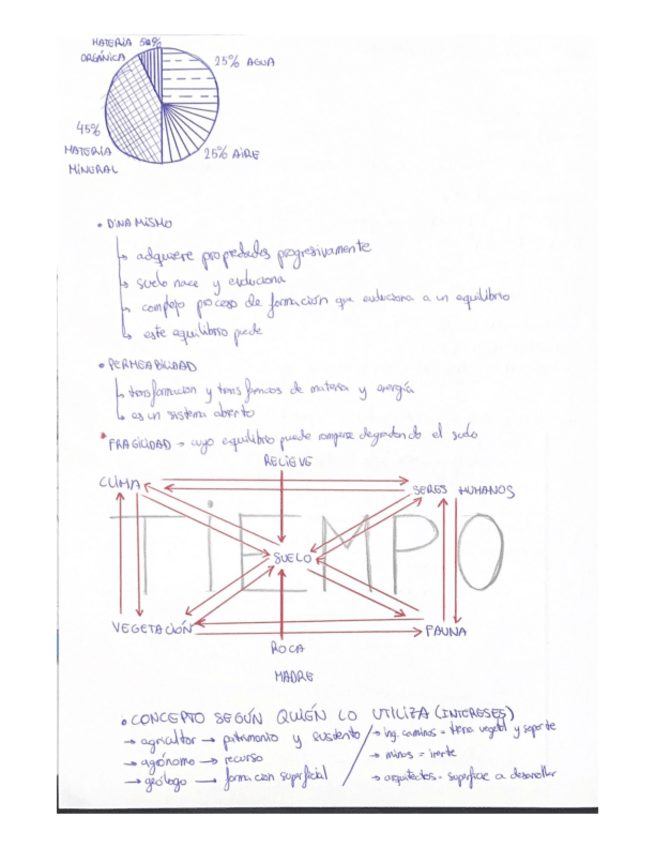 MATERIA 5%
ORGÁNICA
25% AGUA
45%
MATERIA
MINERAL
25% AIRE
• DINAMISMO
↳ adquiere propiedades progresivamente
↳ suelo nace y evoluciona
↳ complejo proceso de formación que evoluciona a un equilibrio
↳ este equilibrio puede
• PERMEABILIDAD
↳ transformacion y transferencias de materia y energía
↳ es un sistema abierto
• FRAGILIDAD → cuyo equilibrio puede romperse degradando el suelo
RELIEVE
CLIMA
SERES HUMANOS
TIEMPO
SUELO
VEGETACIÓN
FAUNA
ROCA
MADRE
• CONCEPTO SEGÚN QUIÉN LO UTILIZA (INTERESES)
→ agricultor → patrimonio y sustento
→ agónomo → recurso
→ geólogo → formacion superficial
→ ing. caminos = tierra vegetal y soporte
→ minas = inerte
→ arquitectos - superficie a desarrollar